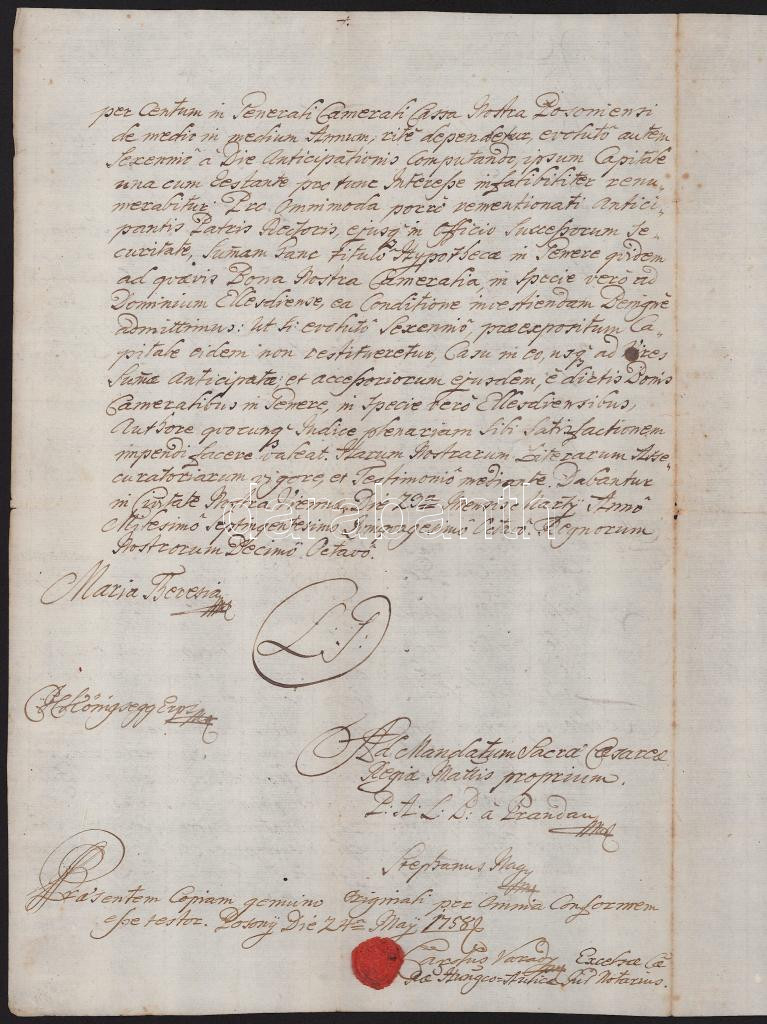 per Centum in Generali Camerali Cassa Nostra Posoniensi
de medio in medium Annum, ritè dependetur, evolutô autem
Sexenniô â Die Anticipationis Computando, ipsum Capitale
una cum restante pro tunc Interesse infalibiliter renu-
merabitur: Pro Omnimoda porrò rementionati Antici-
pantis Patris Rectoris, ejusq in Officio Successorum Se-
curitate, Sumam hanc titulô Hypothecæ in Genere quidem
ad quævis Bona Nostra Cameralia, in Specie verò ad
Dominium Ellesdiense, ea Conditione investiendam Benignè
admittimus: Ut si evolutô Sexenniô, præexpositum Ca-
pitale eidem non restitueretur, Casu in eo, usq ad Vires
Sumæ Anticipatæ et accessoriorum ejusdem, è dictis Bonis
Cameralibus in Genere, in Specie verò Ellesdiensibus,
Authore quorunq Judice plenariam Sibi Satisfactionem
impendi facere valeat. Harum Nostrarum Literarum Asse-
curatoriarum vigore, et Testimoniô mediante. Dabantur
in Civitate Nostra Vienna, Die 29na Mensis Martij Annô
Milesimô Septingentesimô Quinquagesimô Octavô. Regnorum
Nostrorum Decimô Octavô.
darabanth
Maria Theresia
L: S:
Königsegg Erps
Ad Mandatum Sacræ Cæsareæ
Regiæ Mattis proprium.
P: A: L: B: à Prandau
Stephanus Nagy
Præsentem Copiam genuino Originali per Omnia Conformem
esse testor. Posonÿ Die 24ta Maÿ 1758
Carolus Varady Excelsæ Ca
Ræ Hungco-Aulicæ Jur Notarius.